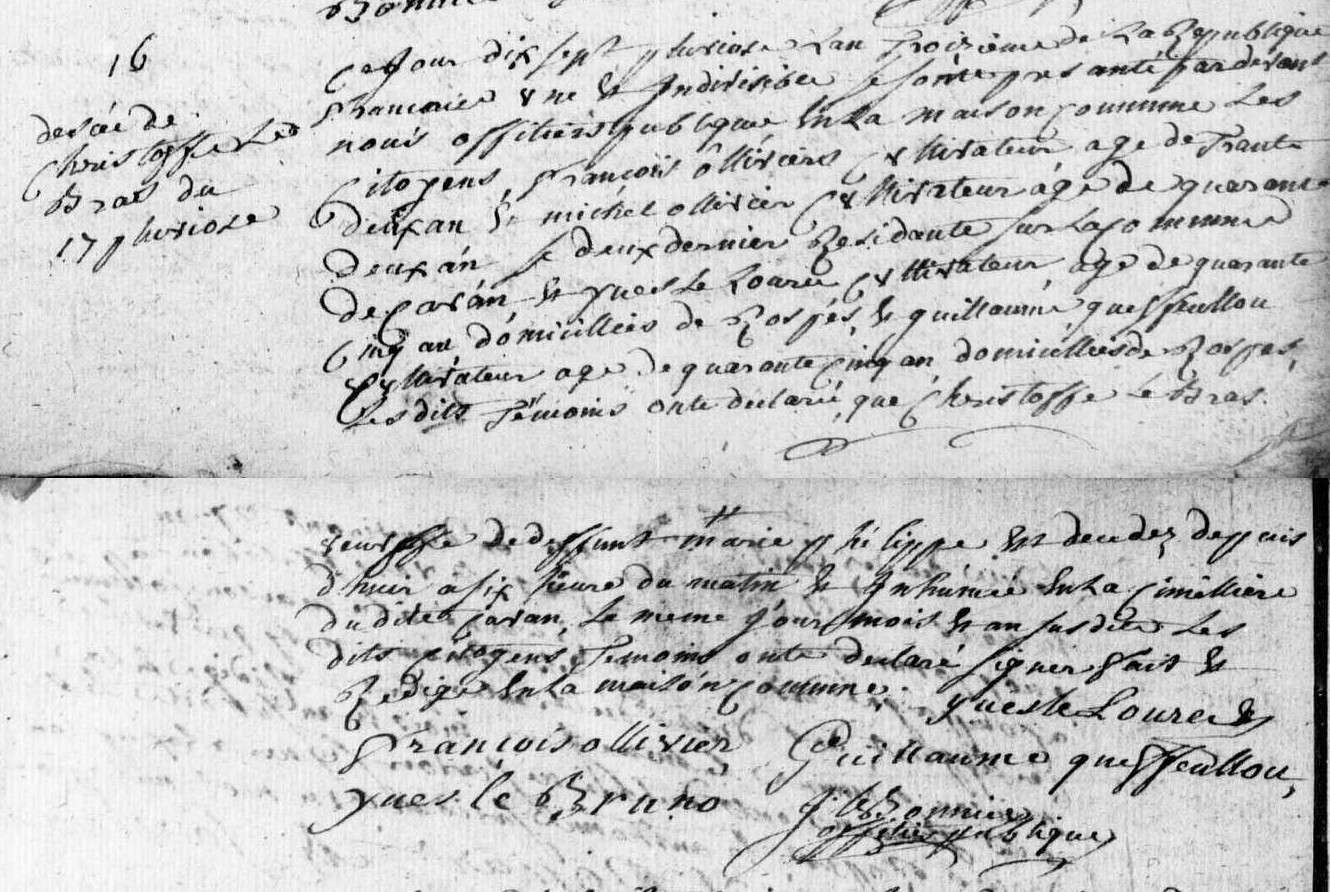 16
desée de
Christoffe Le
Bras du
17 pluviose
Ce Jour dix sept pluviose Lan Troizieme de La Republique
francaice une Et Indivisible se sonte presanté par devant
nous offitiers publique En La maison commune Les
Citoyens, François ollivier Cultivateur age de Trante
deux an Et michel ollivier Cultivateur áge de quarante
deux án le deux dernier Residante sur La Commune
de Cavan Et yves Le Louree Cultivateur age de quarante
Cinq an domicilliés de Rospés, Et guillaume queffeullou
Cultivateur age de quarante Cinq an, domicilliés de Rospes,
Les dits Témoins onte declaré que Christoffe Le Bras.
veuffe de deffunt marie philippe Est decedez depuis
dhuir a six heure du matin Et Inhumé En La Cimettiere
du dite Cavan, Le meme Jour mois Et an susdite Les
dits Citoyens Temoins onte declaré signer fait Et
Redigé En La maison Commune.
yves le Louree
françois ollivier
Guillaume queffeullou,
yves le Bruno
J. Le Bonnie
offitier publique